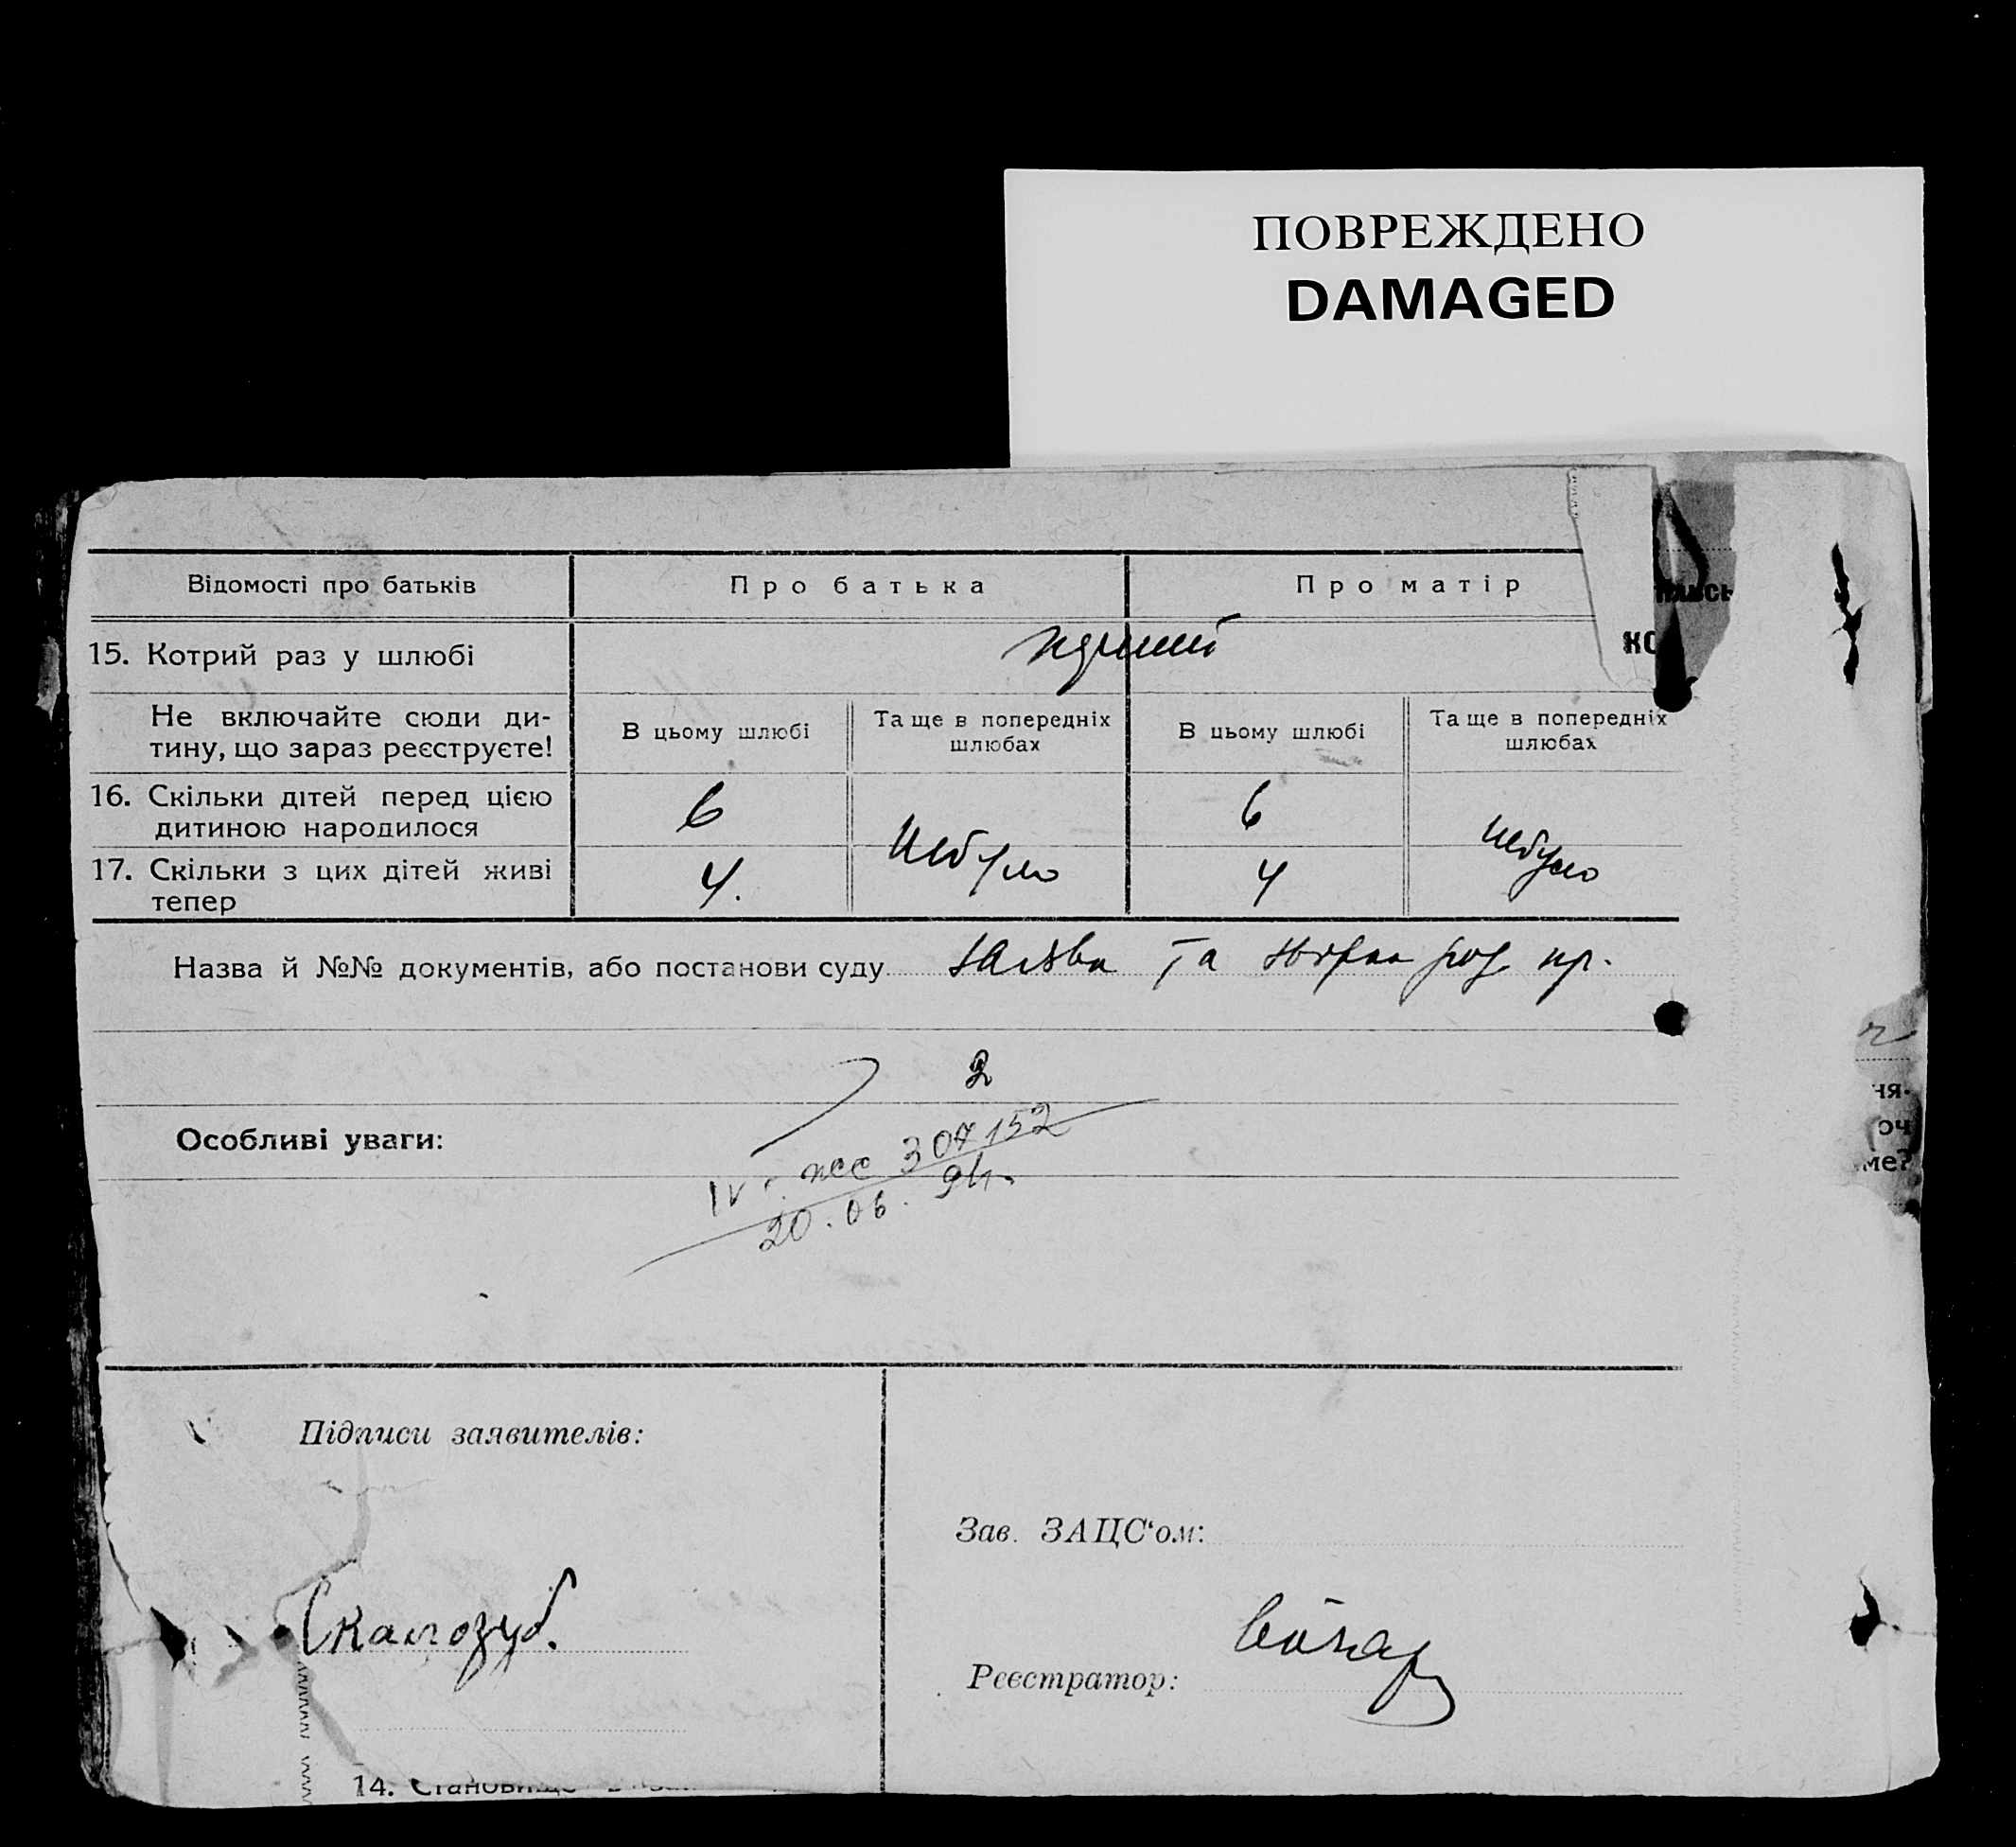 ПОВРЕЖДЕНО
DAMAGED
Відомості про батьків
Про батька
Про матір
КО
15. Котрий раз у шлюбі
Не включайте сюди ди-
тину, що зараз реєструєте!
В цьому шлюбі
Та ще в попередніх
шлюбах
В цьому шлюбі
Та ще в попередніх
шлюбах
16. Скільки дітей перед цією
дитиною народилося
6
небуло
6
небуло
17. Скільки з цих дітей живі
тепер
4.
4
Назва й №№ документів, або постанови суду заява та
2
Особливі уваги:
307152
20.06.94.
ня.
оч
ме?
Підписи заявителів:
Зав. ЗАЦС‘ом:
Скалозуб.
Реєстратор:
14. Становище